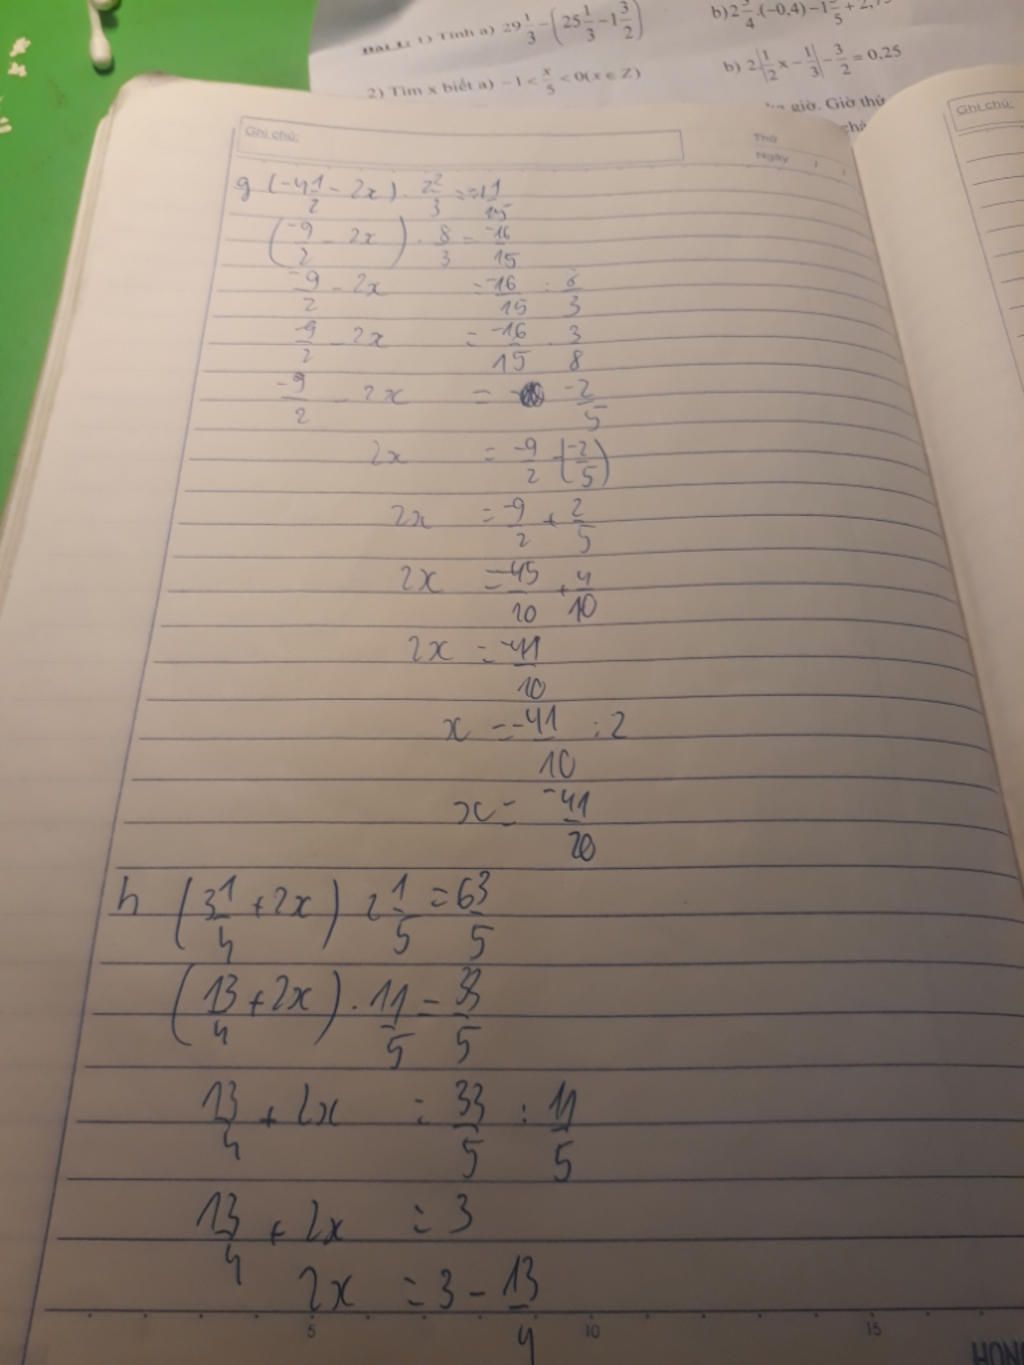 1) Tính a) 29 1/3 − (25 1/3 − 1 3/2)
b) 2 3/4 .(−0,4) − 1
2) Tìm x biết a) −1 < x/5 < 0(x ∈ Z)
b) 2|1/2 x − 1/3| − 3/2 = 0,25
giờ. Giờ thứ
Ghi chú:
Thứ
Ngày / /
Ghi chú:
g (-4 1/2 - 2x) . 2 2/3 = -1 1/15
(-9/2 - 2x) . 8/3 = -16/15
-9/2 - 2x = -16/15 : 8/3
-9/2 - 2x = -16/15 . 3/8
-9/2 - 2x = -2/5
2x = -9/2 - (-2/5)
2x = -9/2 + 2/5
2x = -45/10 + 4/10
2x = -41/10
x = -41/10 : 2
x = -41/20
h (3 1/4 + 2x) 2 1/5 = 6 3/5
(13/4 + 2x) . 11/5 = 33/5
13/4 + 2x = 33/5 : 11/5
13/4 + 2x = 3
2x = 3 - 13/4
5 10 15